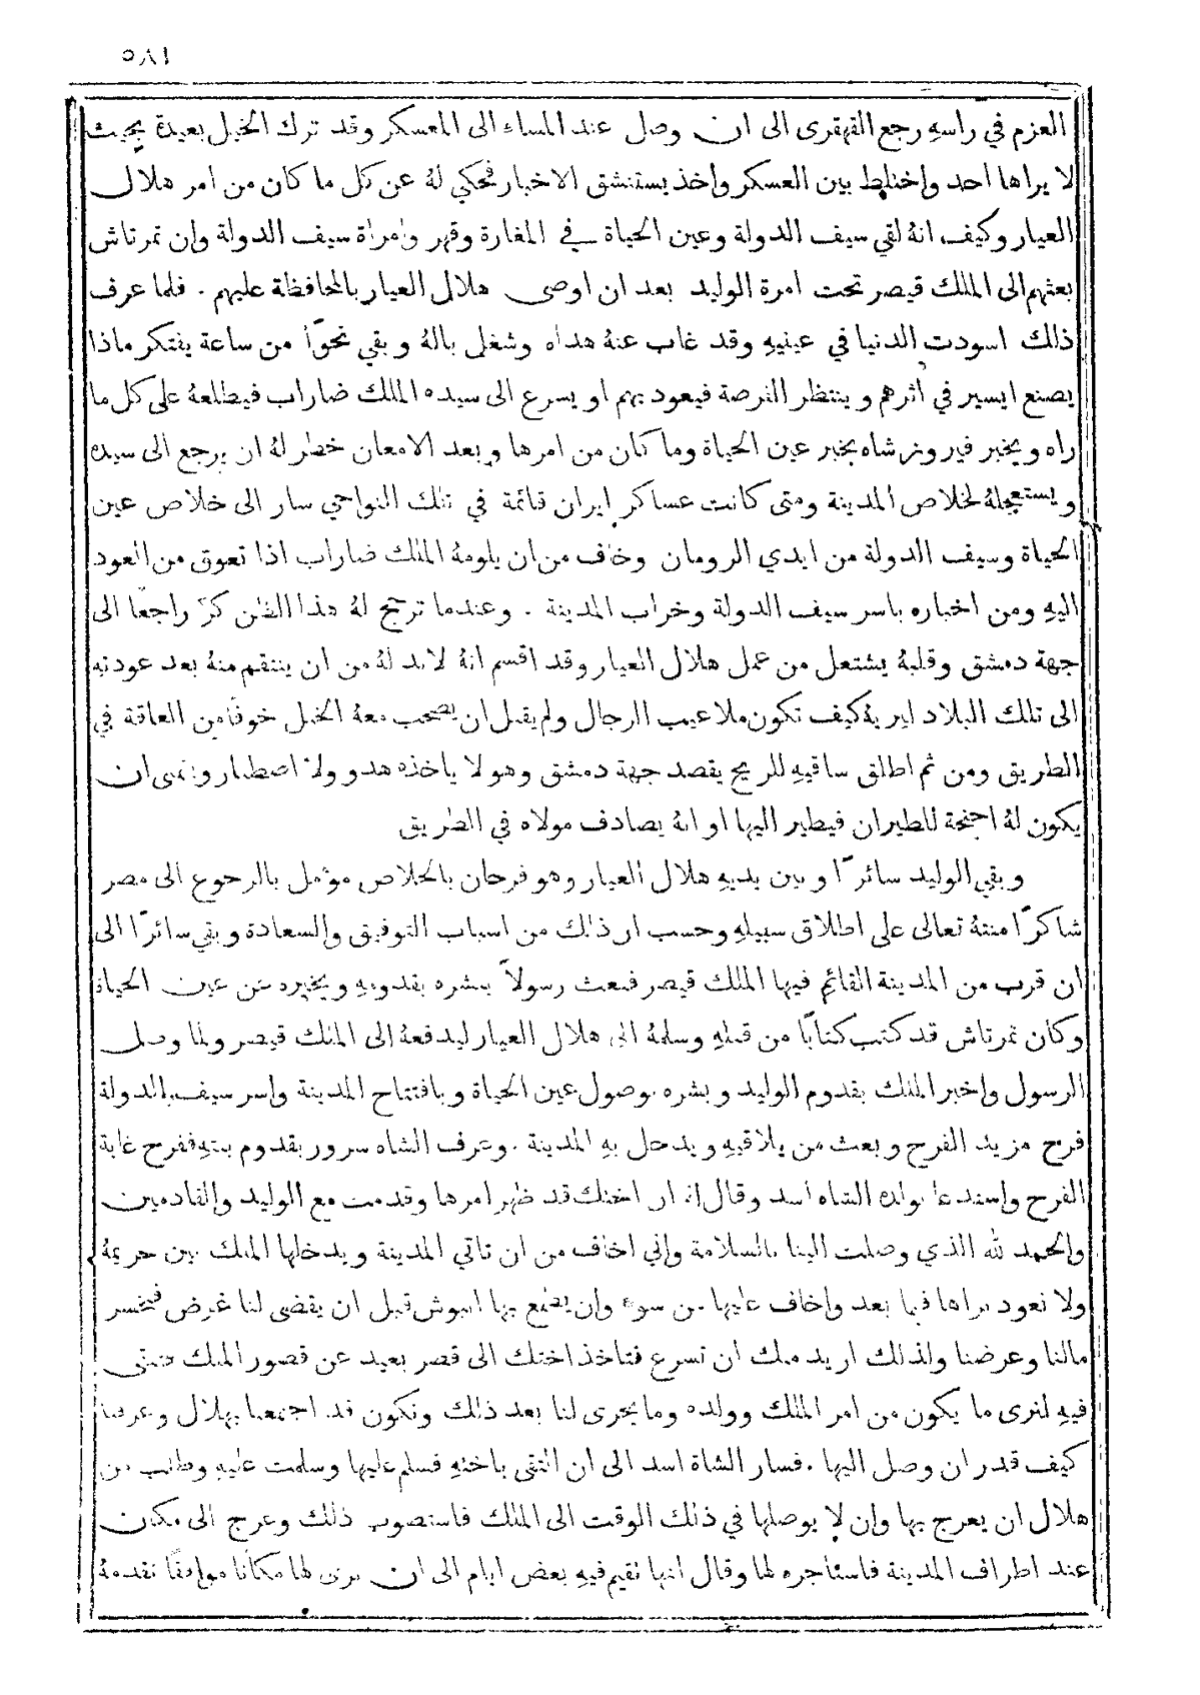 ١٧٥
العزم في راسهِ رجع القهقرى الى ان وصل عند المساء الى المعسكر وقد ترك الخيل بعيدة بحيث
لا يراها احد واختلط بين العسكر واخذ يستنشق الاخبار فحكي لهُ عن كل ما كان من امر هلال
العيار وكيف انهُ لقي سيف الدولة وعين الحياة في المغارة وقهر وامراة سيف الدولة وان تمرتاش
بعثهم الى الملك قيصر تحت امرة الوليد بعد ان اوصى هلال العيار بالمحافظة عليهم . فلما عرف
ذلك اسودت الدنيا في عينيهِ وقد غاب عنهُ هداه وشغل بالهُ وبقي نحوًا من ساعة يفتكر ماذا
يصنع ايسير في اثرهم وينتظر الفرصة فيعود بهم او يسرع الى سيده الملك ضاراب فيطلعهُ على كل ما
راه ويخبر فيروز شاه بخبر عين الحياة وما كان من امرها وبعد الامعان خطر لهُ ان يرجع الى سيده
ويستعجلهُ لخلاص المدينة ومتى كانت عساكر ايران قائمة في تلك النواحي سار الى خلاص عين
الحياة وسيف الدولة من ايدي الرومان وخاف من ان يلومهُ الملك ضاراب اذا تعوق من العود
اليهِ ومن اخباره باسر سيف الدولة وخراب المدينة . وعندما ترجح لهُ هذا الظن كرّ راجعًا الى
جهة دمشق وقلبهُ يشتعل من عمل هلال العيار وقد اقسم انهُ لابد لهُ من ان ينتقم منهُ بعد عودتهِ
الى تلك البلاد ليريهُ كيف تكون ملاعيب الرجال ولم يقبل ان يصحب معهُ الخيل خوفًا من العاقة في
الطريق ومن ثم اطلق ساقيهِ للريح يقصد جهة دمشق وهو لا ياخذه هدو ولا اصطبار وتمنى ان
يكون لهُ اجنحة للطيران فيطير اليها او انهُ يصادف مولاه في الطريق
وبقي الوليد سائرًا وبين يديهِ هلال العيار وهو فرحان بالخلاص مؤمل بالرجوع الى مصر
شاكرًا منتهُ تعالى على اطلاق سبيلهِ وحسب ان ذلك من اسباب التوفيق والسعادة وبقي سائرًا الى
ان قرب من المدينة القائم فيها الملك قيصر فبعث رسولاً يبشره بقدومهِ ويخبره عن عين الحياة
وكان تمرتاش قد كتب كتابًا من قبلهِ وسلمهُ الى هلال العيار ليدفعهُ الى الملك قيصر ولما وصل
الرسول واخبر الملك بقدوم الوليد وبشره بوصول عين الحياة وبافتتاح المدينة واسر سيف الدولة
فرح مزيد الفرح وبعث من يلاقيهِ ويدخل بهِ المدينة . وعرف الشاه سرور بقدوم بنتهِ ففرح غاية
الفرح واستدعا بولده الشاه اسد وقال لهُ ان اختك قد ظهر امرها وقدمت مع الوليد والقادمين
والحمد لله الذي وصلت الينا بالسلامة واني اخاف من ان تاتي المدينة ويدخلها الملك بين حريمهُ
ولا نعود نراها فيما بعد واخاف عليها من سوء وان يطمع بها انبوش قبل ان يقضى لنا غرض فنخسر
مالنا وعرضنا ولذلك اريد منك ان تسرع فتاخذ اختك الى قصر بعيد عن قصور الملك فتبقى
فيهِ لنرى ما يكون من امر الملك وولده وما يجرى لنا بعد ذلك ونكون قد اجتمعنا بهلال وعرفنا
كيف قدر ان وصل اليها . فسار الشاة اسد الى ان التقى باختهِ فسلم عليها وسلمت عليهِ وطلب من
هلال ان يعرج بها وان لا يوصلها في ذلك الوقت الى الملك فاستصوب ذلك وعرج الى مكان
عند اطراف المدينة فاستاجره لها وقال انها تقيم فيهِ بعض ايام الى ان يرى لها مكانًا موافقًا نقدمهُ